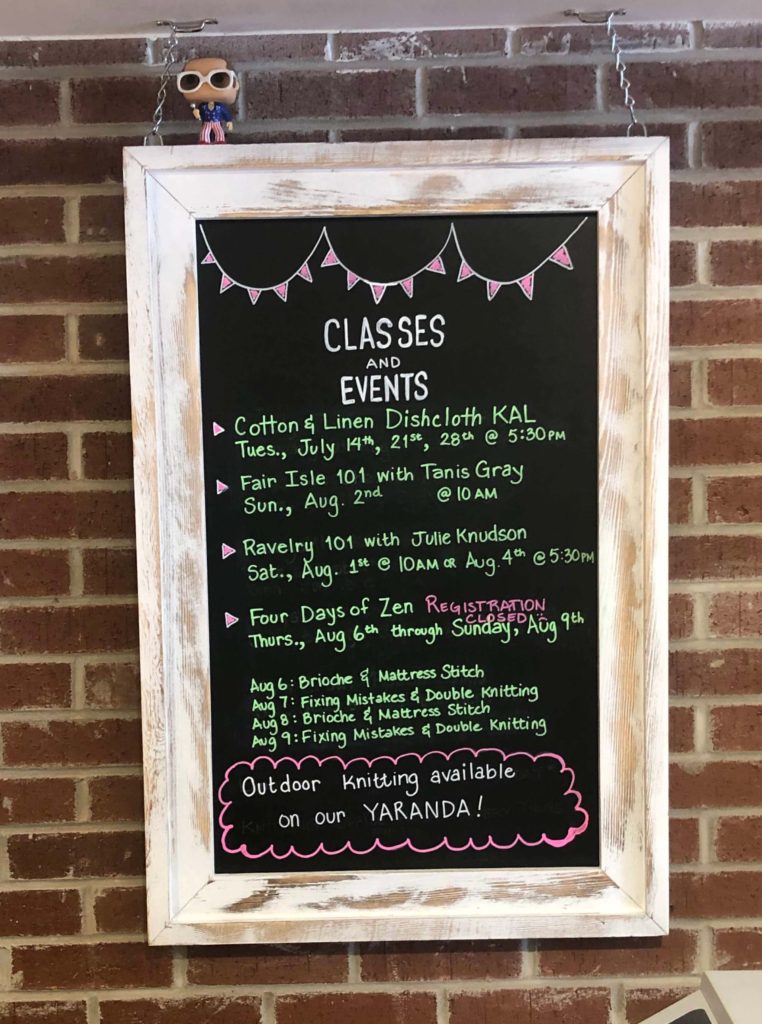 CLASSES
AND
EVENTS
Cotton & Linen Dishcloth KAL
Tues., July 14th, 21st, 28th @ 5:30PM
Fair Isle 101 with Tanis Gray
Sun., Aug. 2nd @ 10 AM
Ravelry 101 with Julie Knudson
Sat., Aug. 1st @ 10AM OR Aug. 4th @ 5:30PM
Four Days of Zen REGISTRATION
CLOSED
Thurs., Aug 6th through Sunday, Aug 9th
Aug 6: Brioche & Mattress Stitch
Aug 7: Fixing Mistakes & Double Knitting
Aug 8: Brioche & Mattress Stitch
Aug 9: Fixing Mistakes & Double Knitting
Outdoor Knitting available
on our YARANDA!